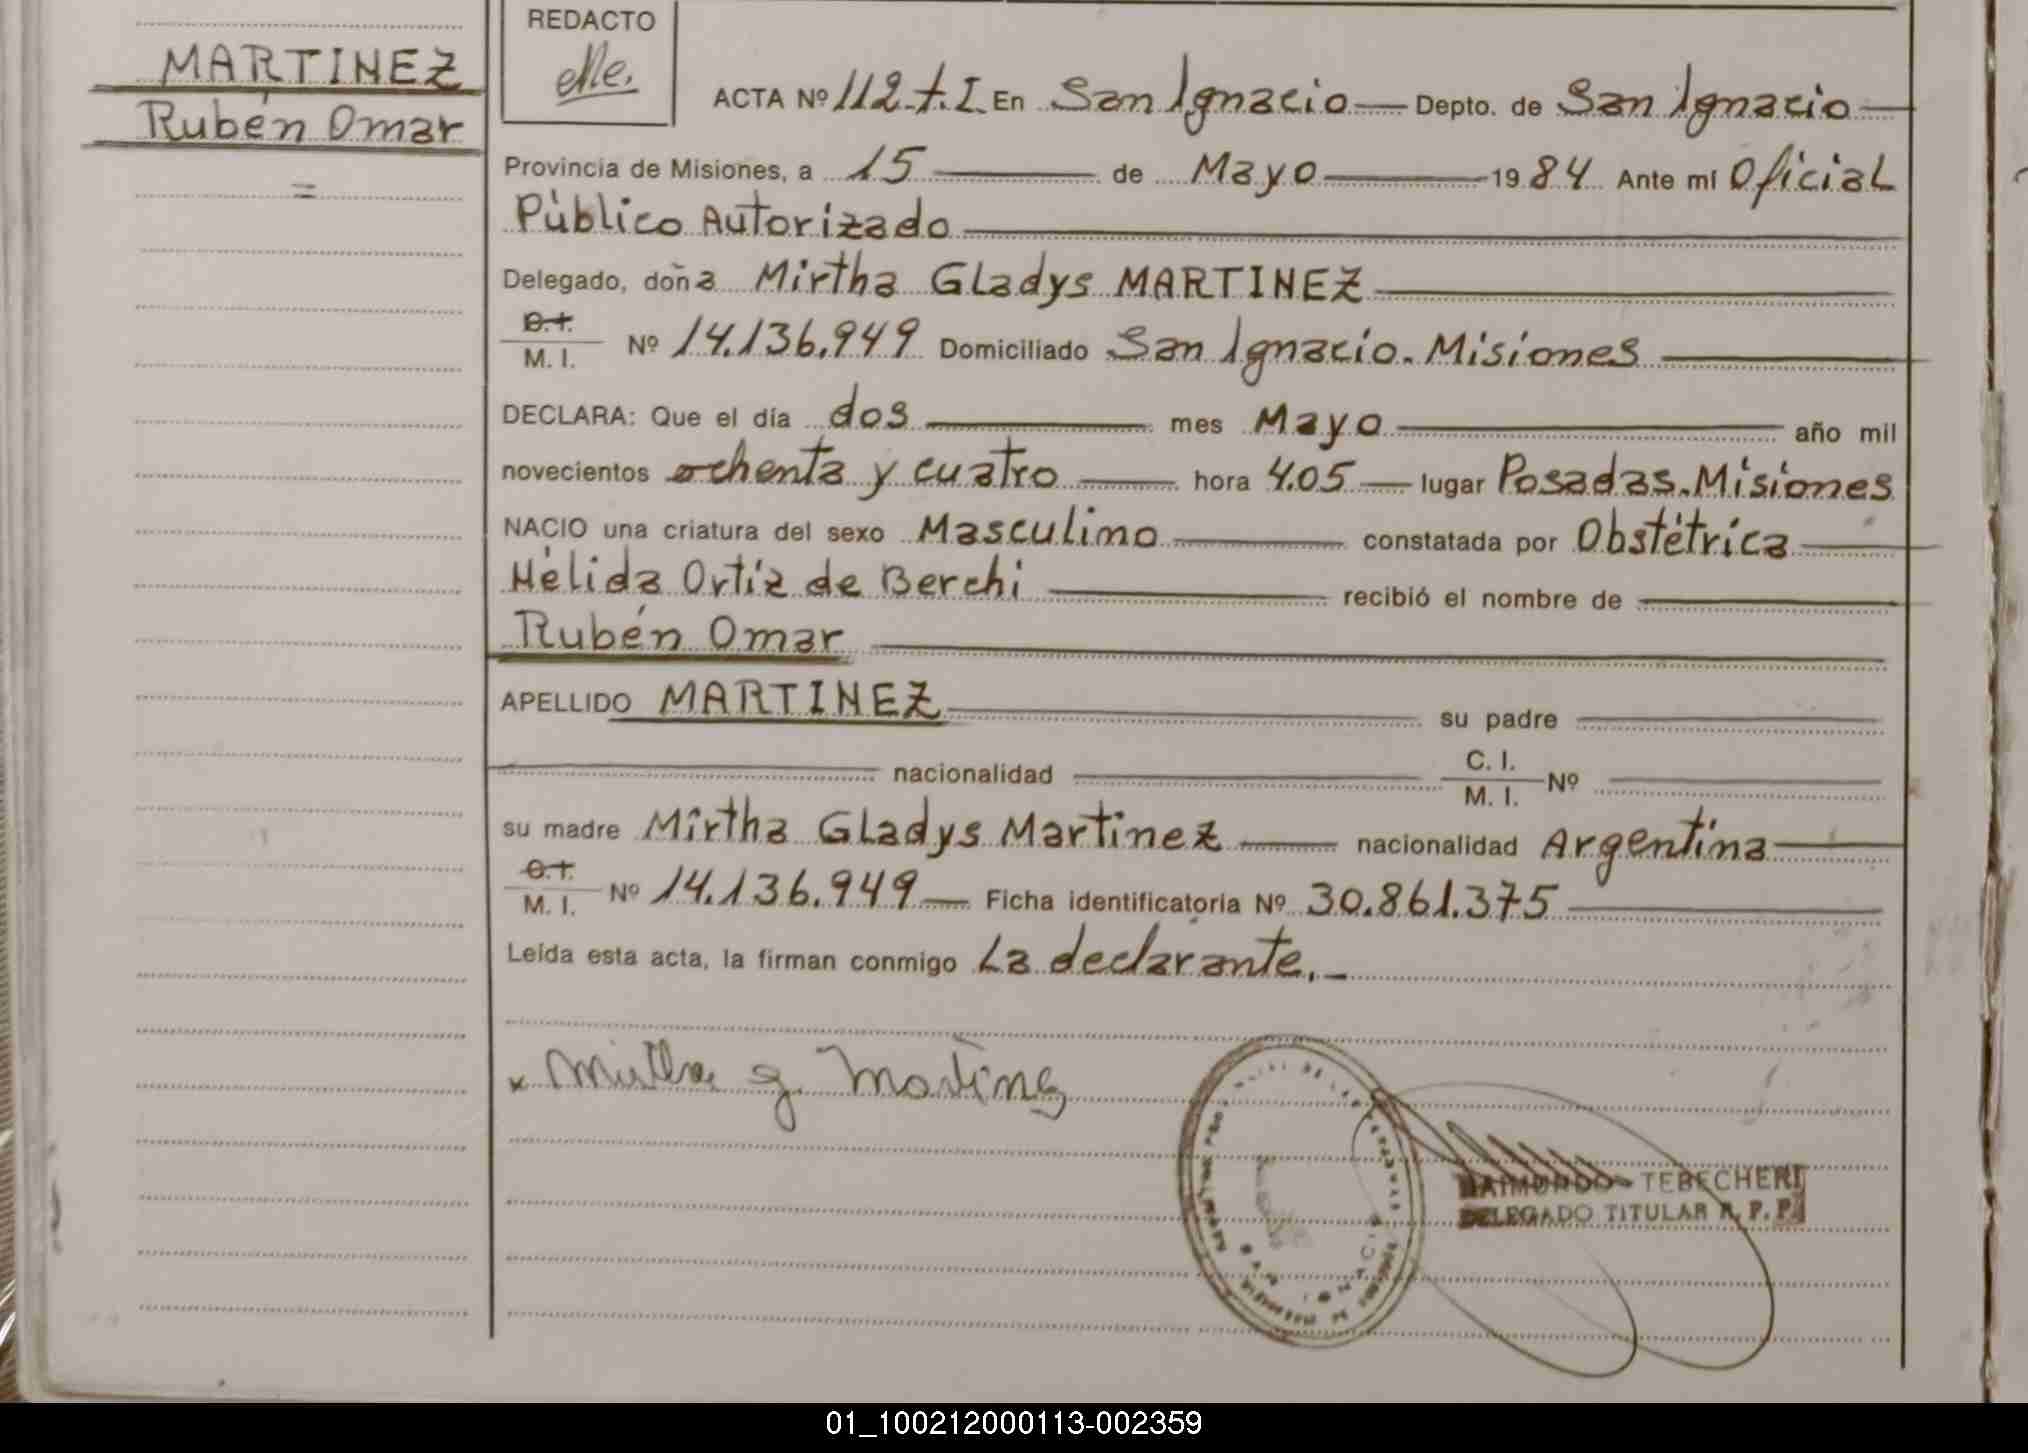 MARTINEZ
Rubén Omar
=
REDACTO
ACTA Nº 112-t.I En San Ignacio Depto. de San Ignacio
Provincia de Misiones, a 15 de Mayo 1984 Ante mí Oficial
Público Autorizado
Delegado, doña Mirtha Gladys MARTINEZ
C.I.
M. I. Nº 14.136.949 Domiciliado San Ignacio. Misiones
DECLARA: Que el día dos mes Mayo año mil
novecientos ochenta y cuatro hora 4.05 lugar Posadas. Misiones
NACIO una criatura del sexo Masculino constatada por Obstétrica
Hélida Ortíz de Berchi recibió el nombre de
Rubén Omar
APELLIDO MARTINEZ su padre
nacionalidad C. I.
M. I. Nº
su madre Mirtha Gladys Martinez nacionalidad Argentina
C.I.
M. I. Nº 14.136.949 Ficha identificatoria Nº 30.861.375
Leída esta acta, la firman conmigo La declarante.
x Mirtha g. Martinez
SAN IGNACIO
RAIMUNDO TEBECHERI
DELEGADO TITULAR R. P. P.
01_100212000113-002359